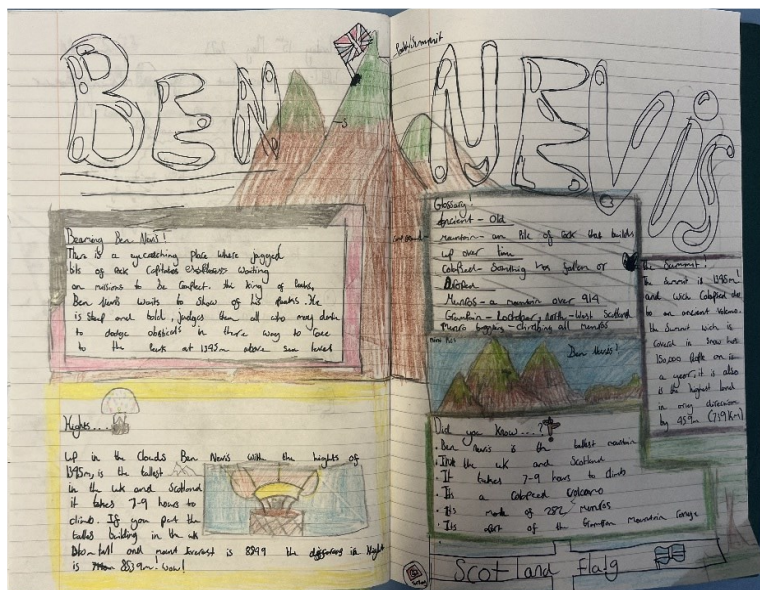 BEN NEVIS
Beaming Ben Nevis!
There is a eyecatching place where jagged
bits of rock explorers waiting
on missions to be complet. the king of Peaks,
Ben Nevis waits to show of his peaks. He
is steep and told, judges then all who may dare
to dodge obsticals in there way to
to the Peak at 1345m above sea level
Hights....
up in the Clouds Ben Nevis with the hights of
1345m, is the tallest
in the UK and Scotland
it takes 7-9 hours to
climb. If you put the
talles building in the uk
and mount Everest is 8849 the differens in hight
is 8539m! wow!
Glossary!
Ancient - Old
mountain - an Pile of rock that builds
up over time
Colapsed - Somthing has fallen or
Droped
Munros - a mountain over 914
Grampian - Lochaber, north-west Scotland
Munro bagging - climbing all munros
Ben Nevis!
the Summit!
The Summit is 1345m!
and wich Colapsed due
to an ancient Volcano.
the Summit wich is
Coverd in Snow has
150,000 Peple on is
a year, it is also
is the highest land
in any direction
by 459m (739Km)
Did you know...?
Ben Nevis is the tallest mountain
In the uk and Scotland
It takes 7-9 hours to climb
Its a Colapsed volcano
Its made of 282 munros
Its part of the Grampian Mountain range
Scotland Flag